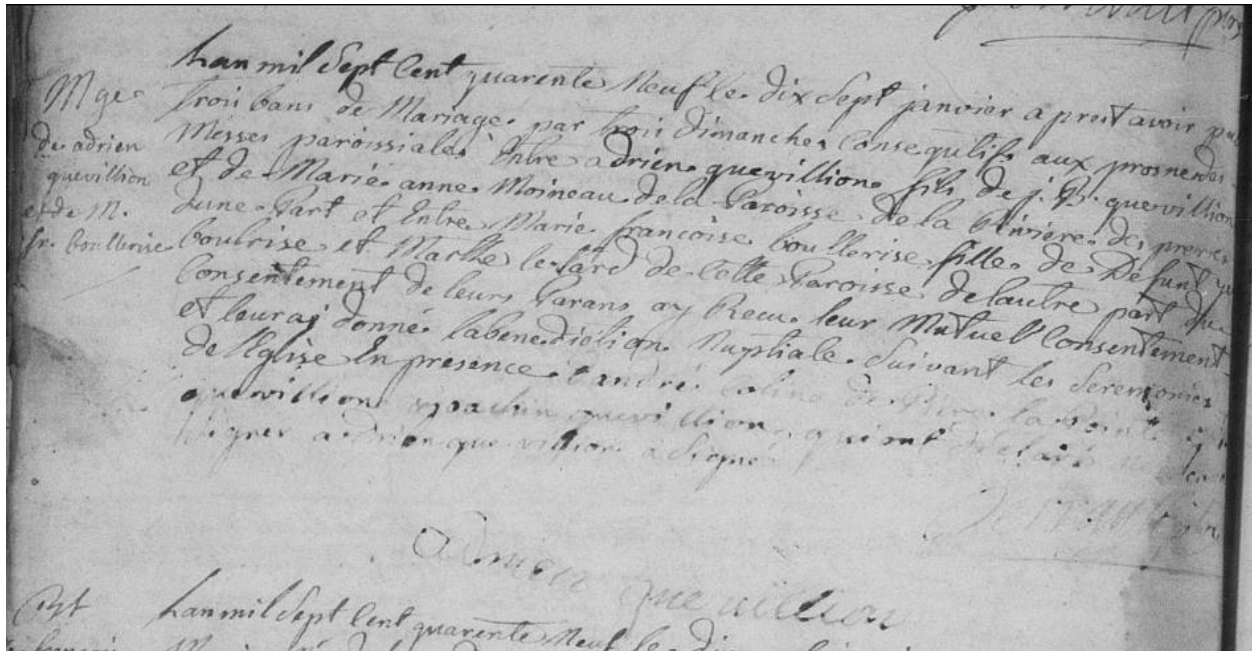 Lan mil Sept Cent quarente Neuf le dix Sept janvier a prest avoir pu
trois bans de Mariage par trois dimanches Consequtifs aux prosnes des
Messes paroissiales Entre adrien quevillion fils de j. B. quevillion
et de Marie anne Moineau de la Paroisse de la Riviere des preries
dune Part et Entre Marie françoise boullerise fille de Defunt
boulrise et Marthe letard de Cette Paroisse de lautre part du
Consentement de leurs Parans ay Recu leur Mutuel Consentement
et leur ai donné la benediction Nuptiale Suivant les Seremonies
de lEglise En presence dandré Colin de la Pointe
quevillion joachin quevillion qui ont declaré ne
Signer adrien quevillion a Signé
Mge
de adrien
quevillion
et de M.
fr. boullerise
adrien quevillion
Lan mil Sept Cent quarente Neuf le